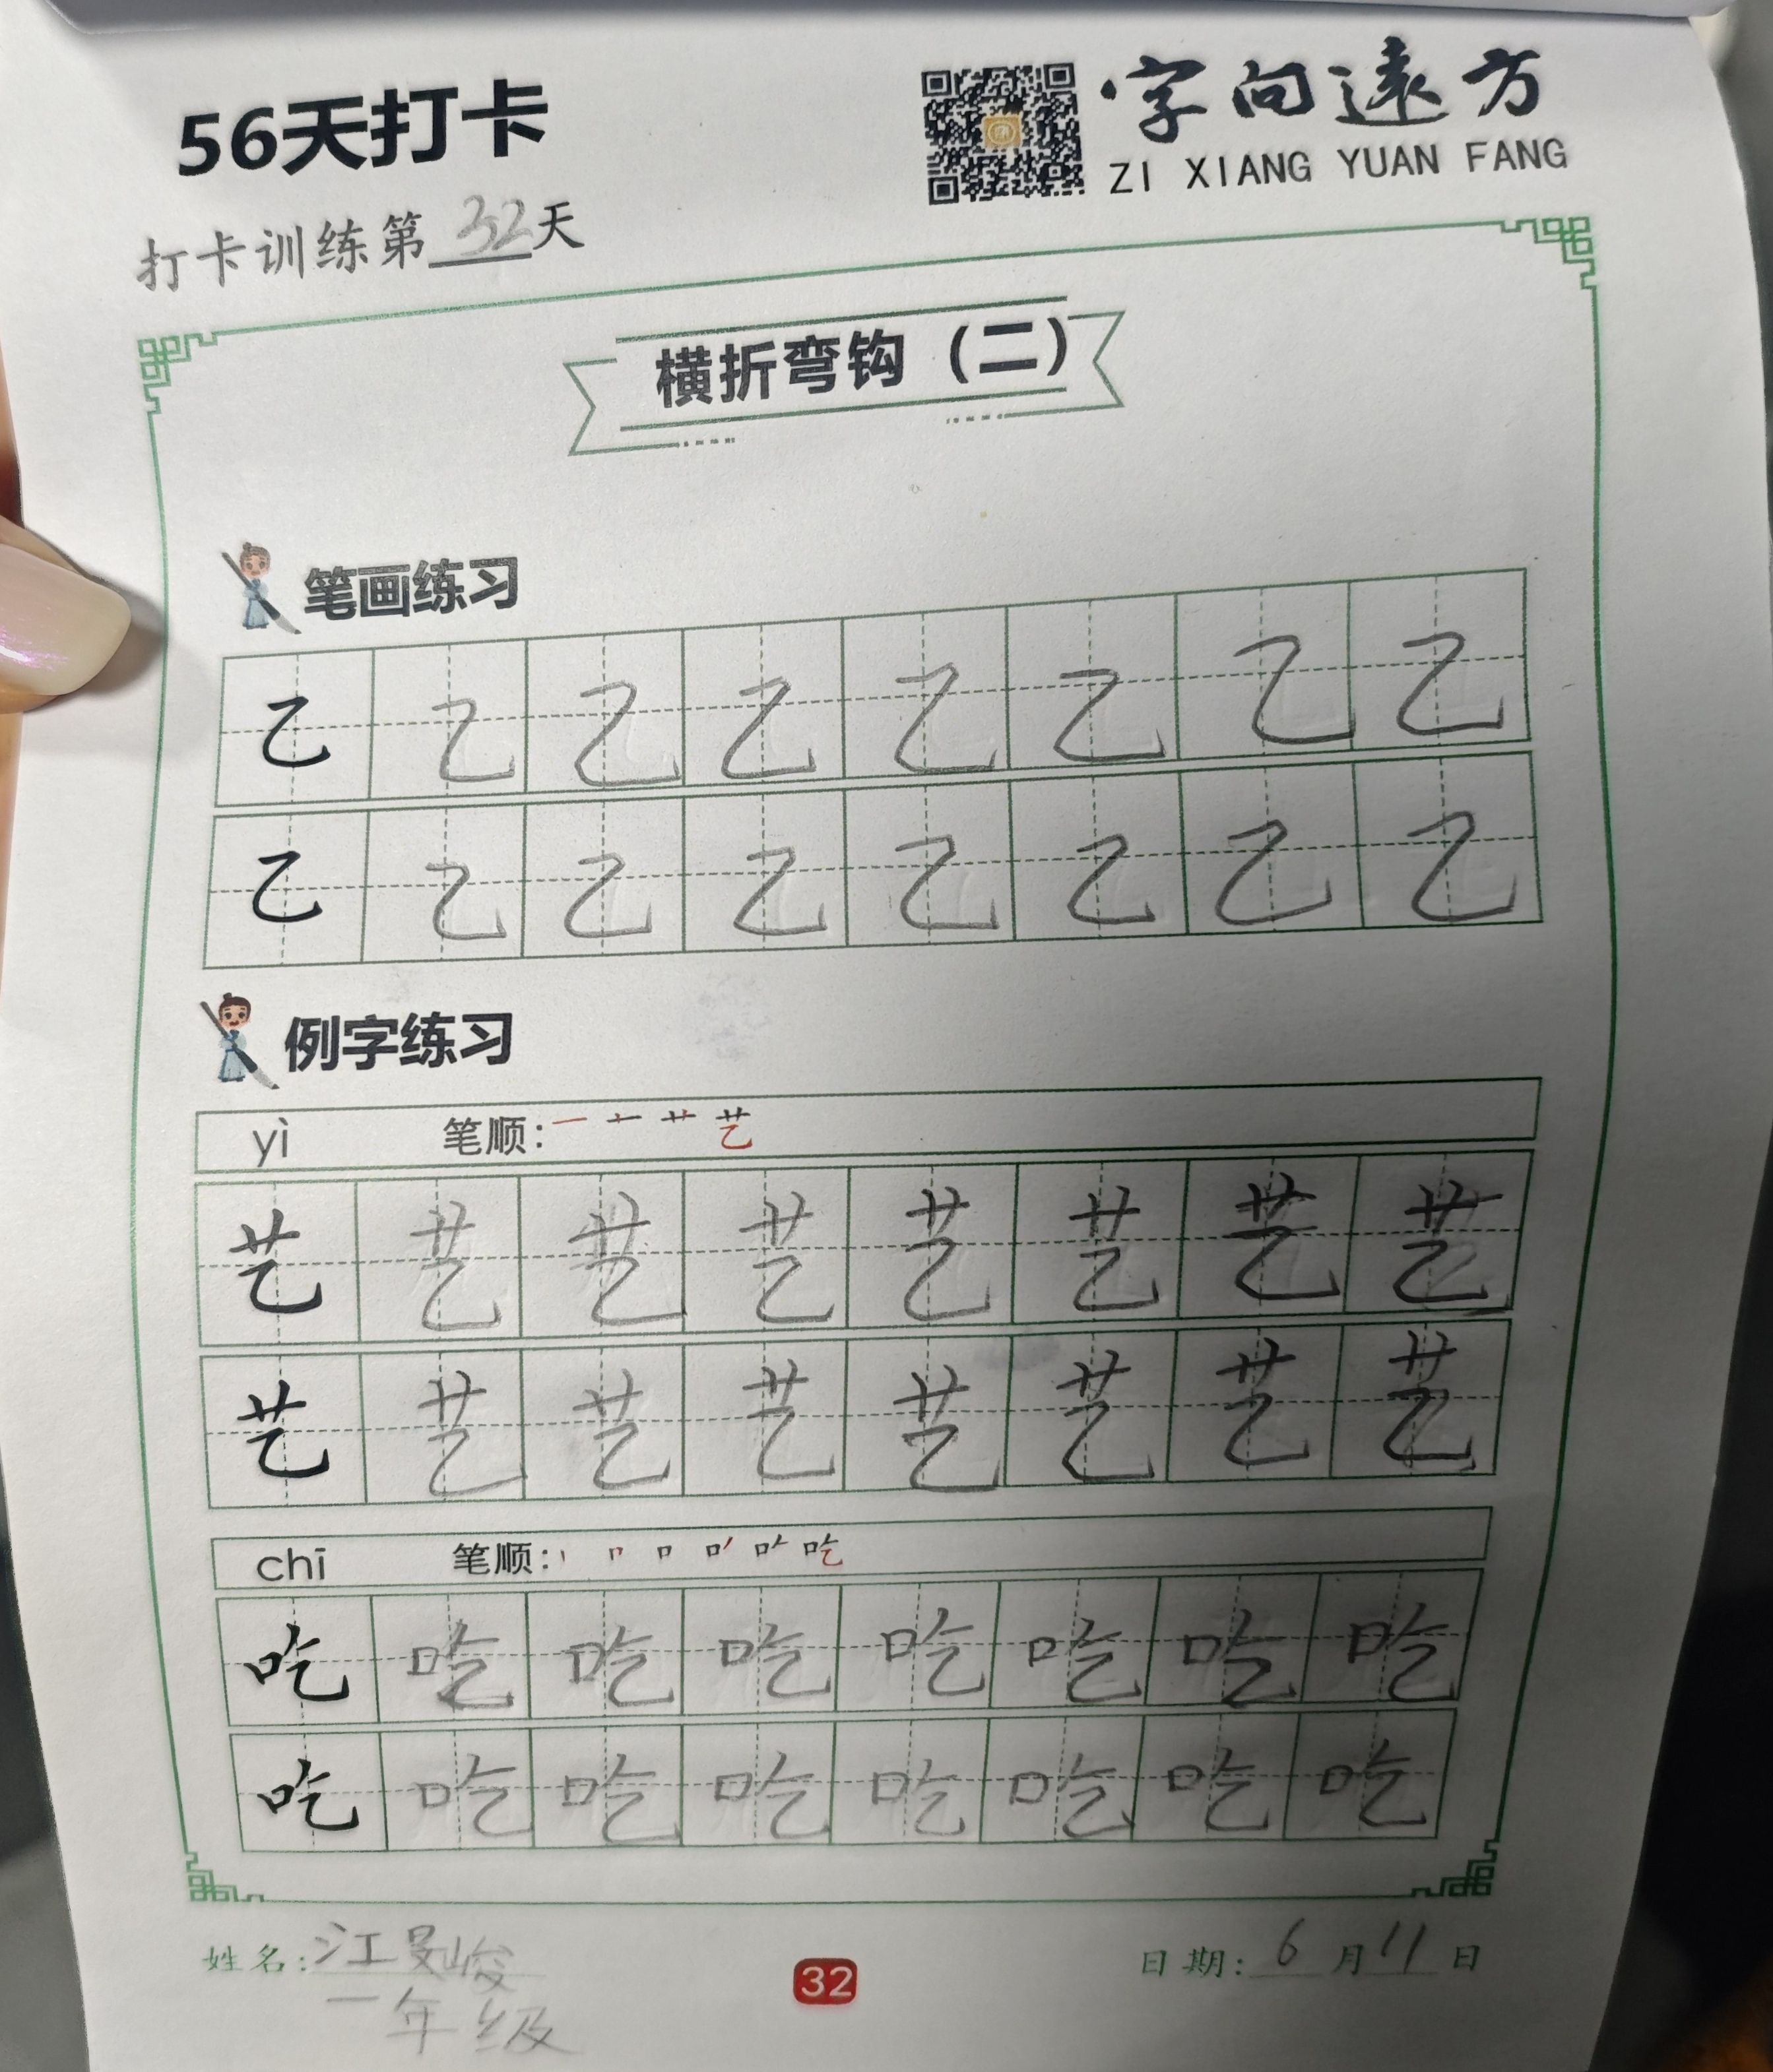 56天打卡
字向远方
ZI XIANG YUAN FANG
打卡训练第32天
横折弯钩（二）
笔画练习
乙 乙 乙 乙 乙 乙 乙 乙
乙 乙 乙 乙 乙 乙 乙 乙
例字练习
yì 笔顺： 艺
艺 艺 艺 艺 艺 艺 艺 艺
艺 艺 艺 艺 艺 艺 艺 艺
chī 笔顺： 吃
吃 吃 吃 吃 吃 吃 吃 吃
吃 吃 吃 吃 吃 吃 吃 吃
姓名：江旻峻
32
日期：6月11日
一年级